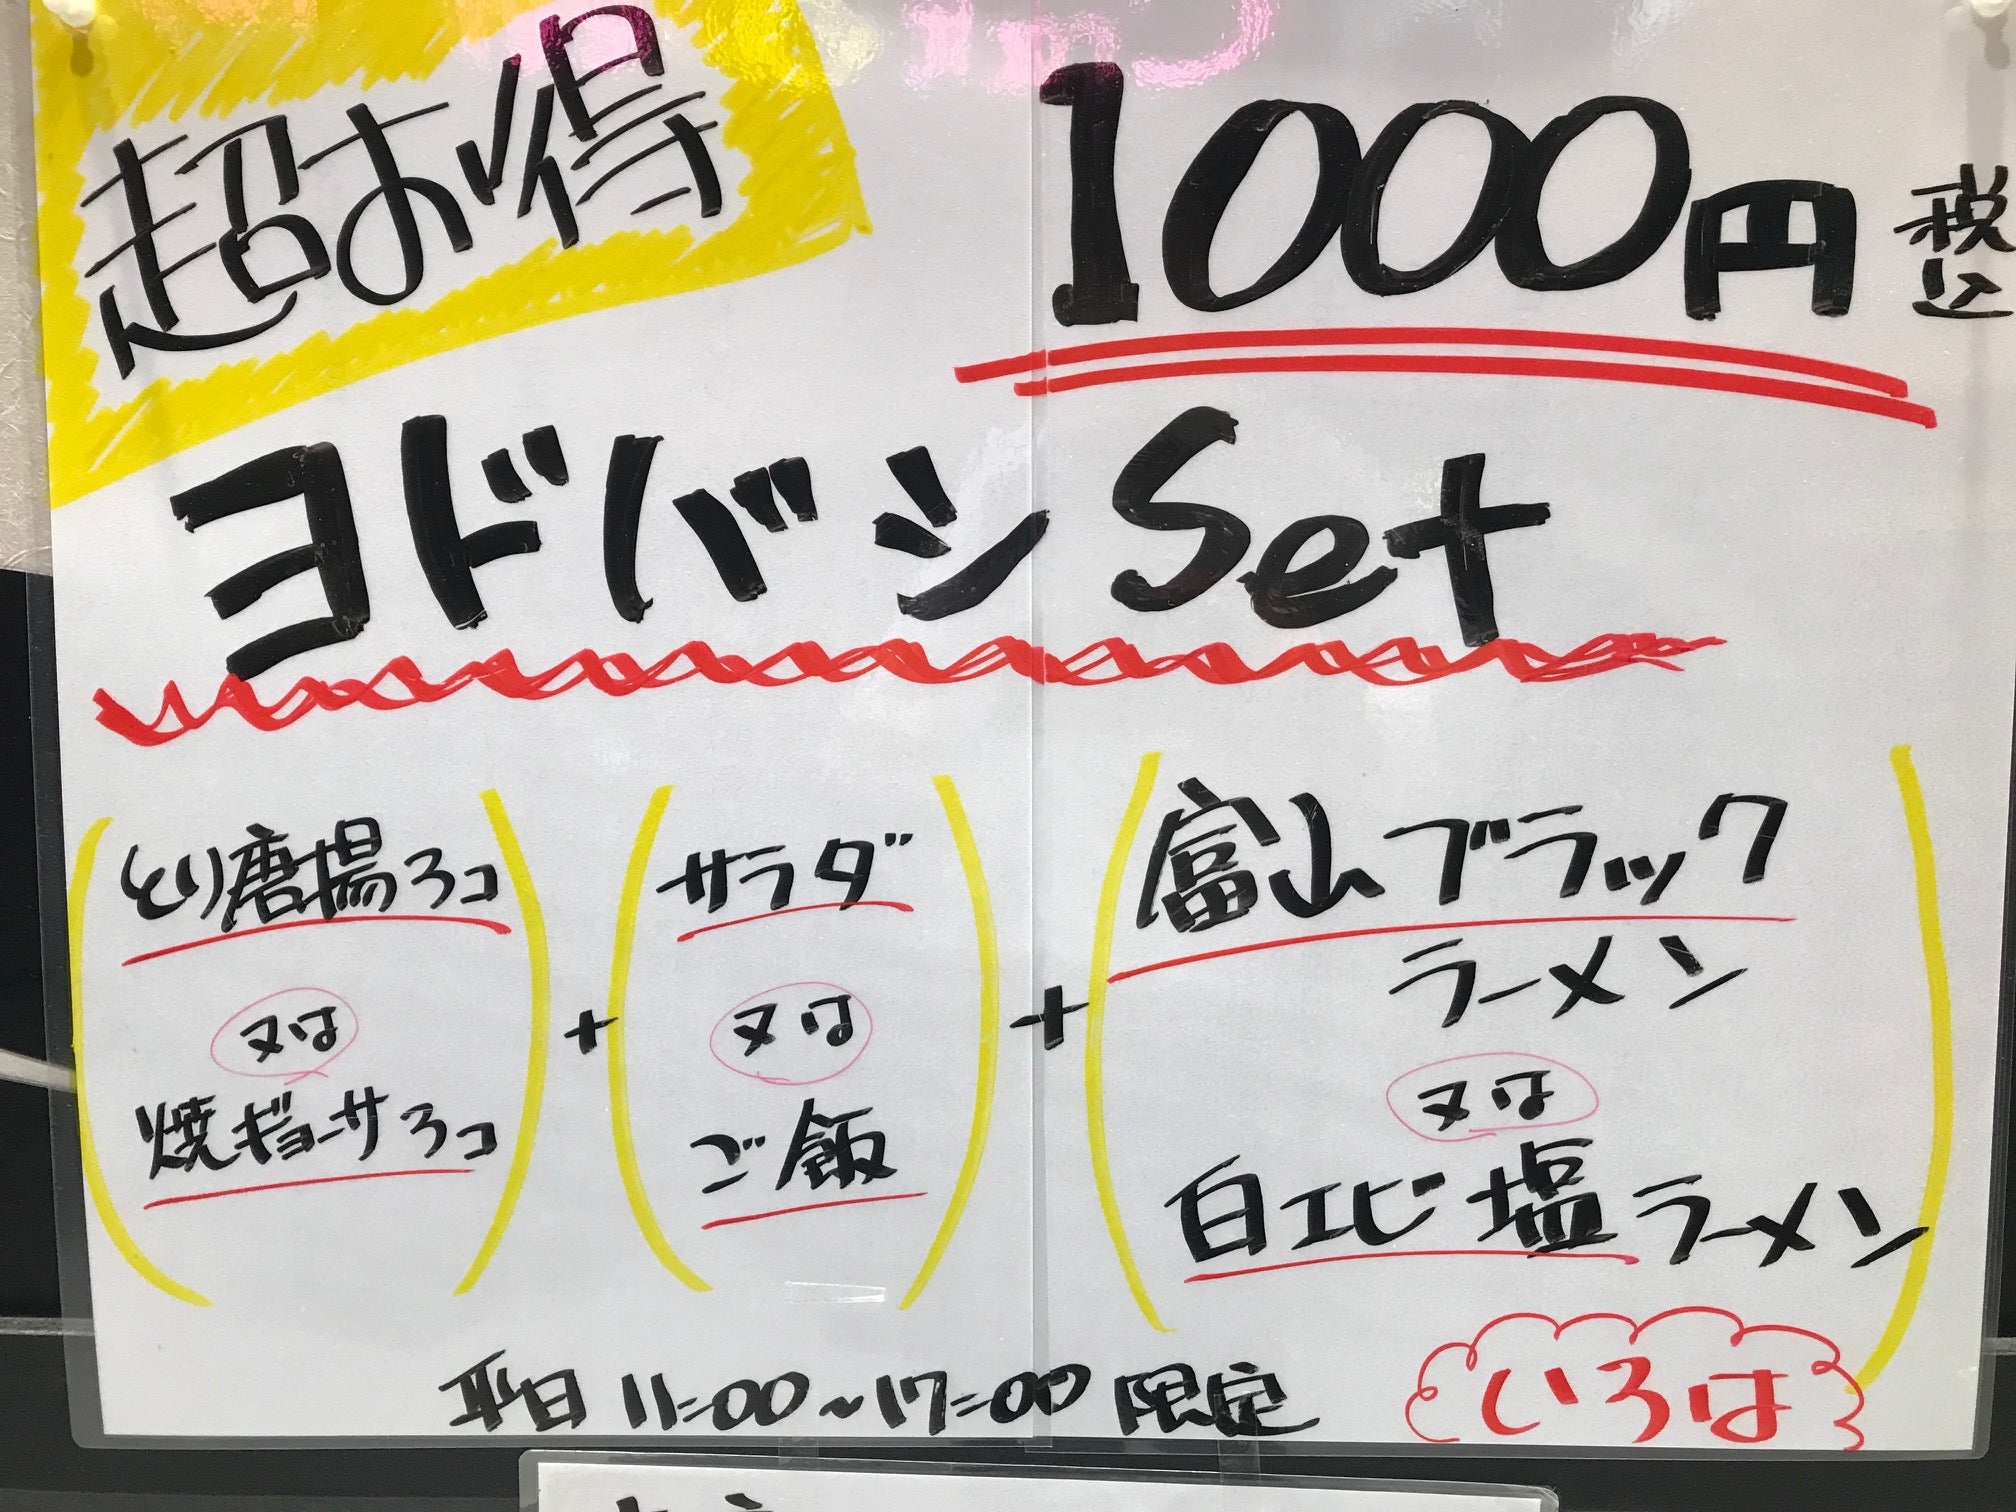 超お得
1000円 税込
ヨドバシSet
とり唐揚3コ
又は
焼ギョーサ3コ
+
サラダ
又は
ご飯
+
富山ブラック
ラーメン
又は
白エビ塩ラーメン
平日 11:00~17:00 限定
いろは